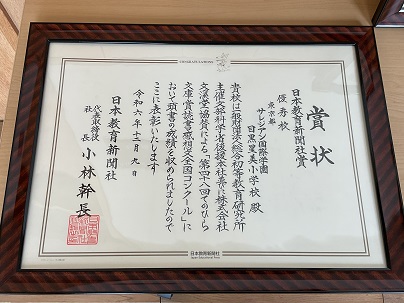 CONGRATULATIONS
賞状
日本教育新聞社賞
優秀校
東京都
サレジアン国際学園
目黒星美小学校 殿
貴校は一般財団法人総合初等教育研究所
主催文部科学省後援本社並に株式会社
文溪堂協賛による「第四十八回てのひら
文庫賞読書感想文全国コンクール」に
おいて頭書の成績を収められましたので
ここに表彰いたします
令和六年十二月九日
日本教育新聞社
代表取締役
社長 小林幹長
日本教育新聞社